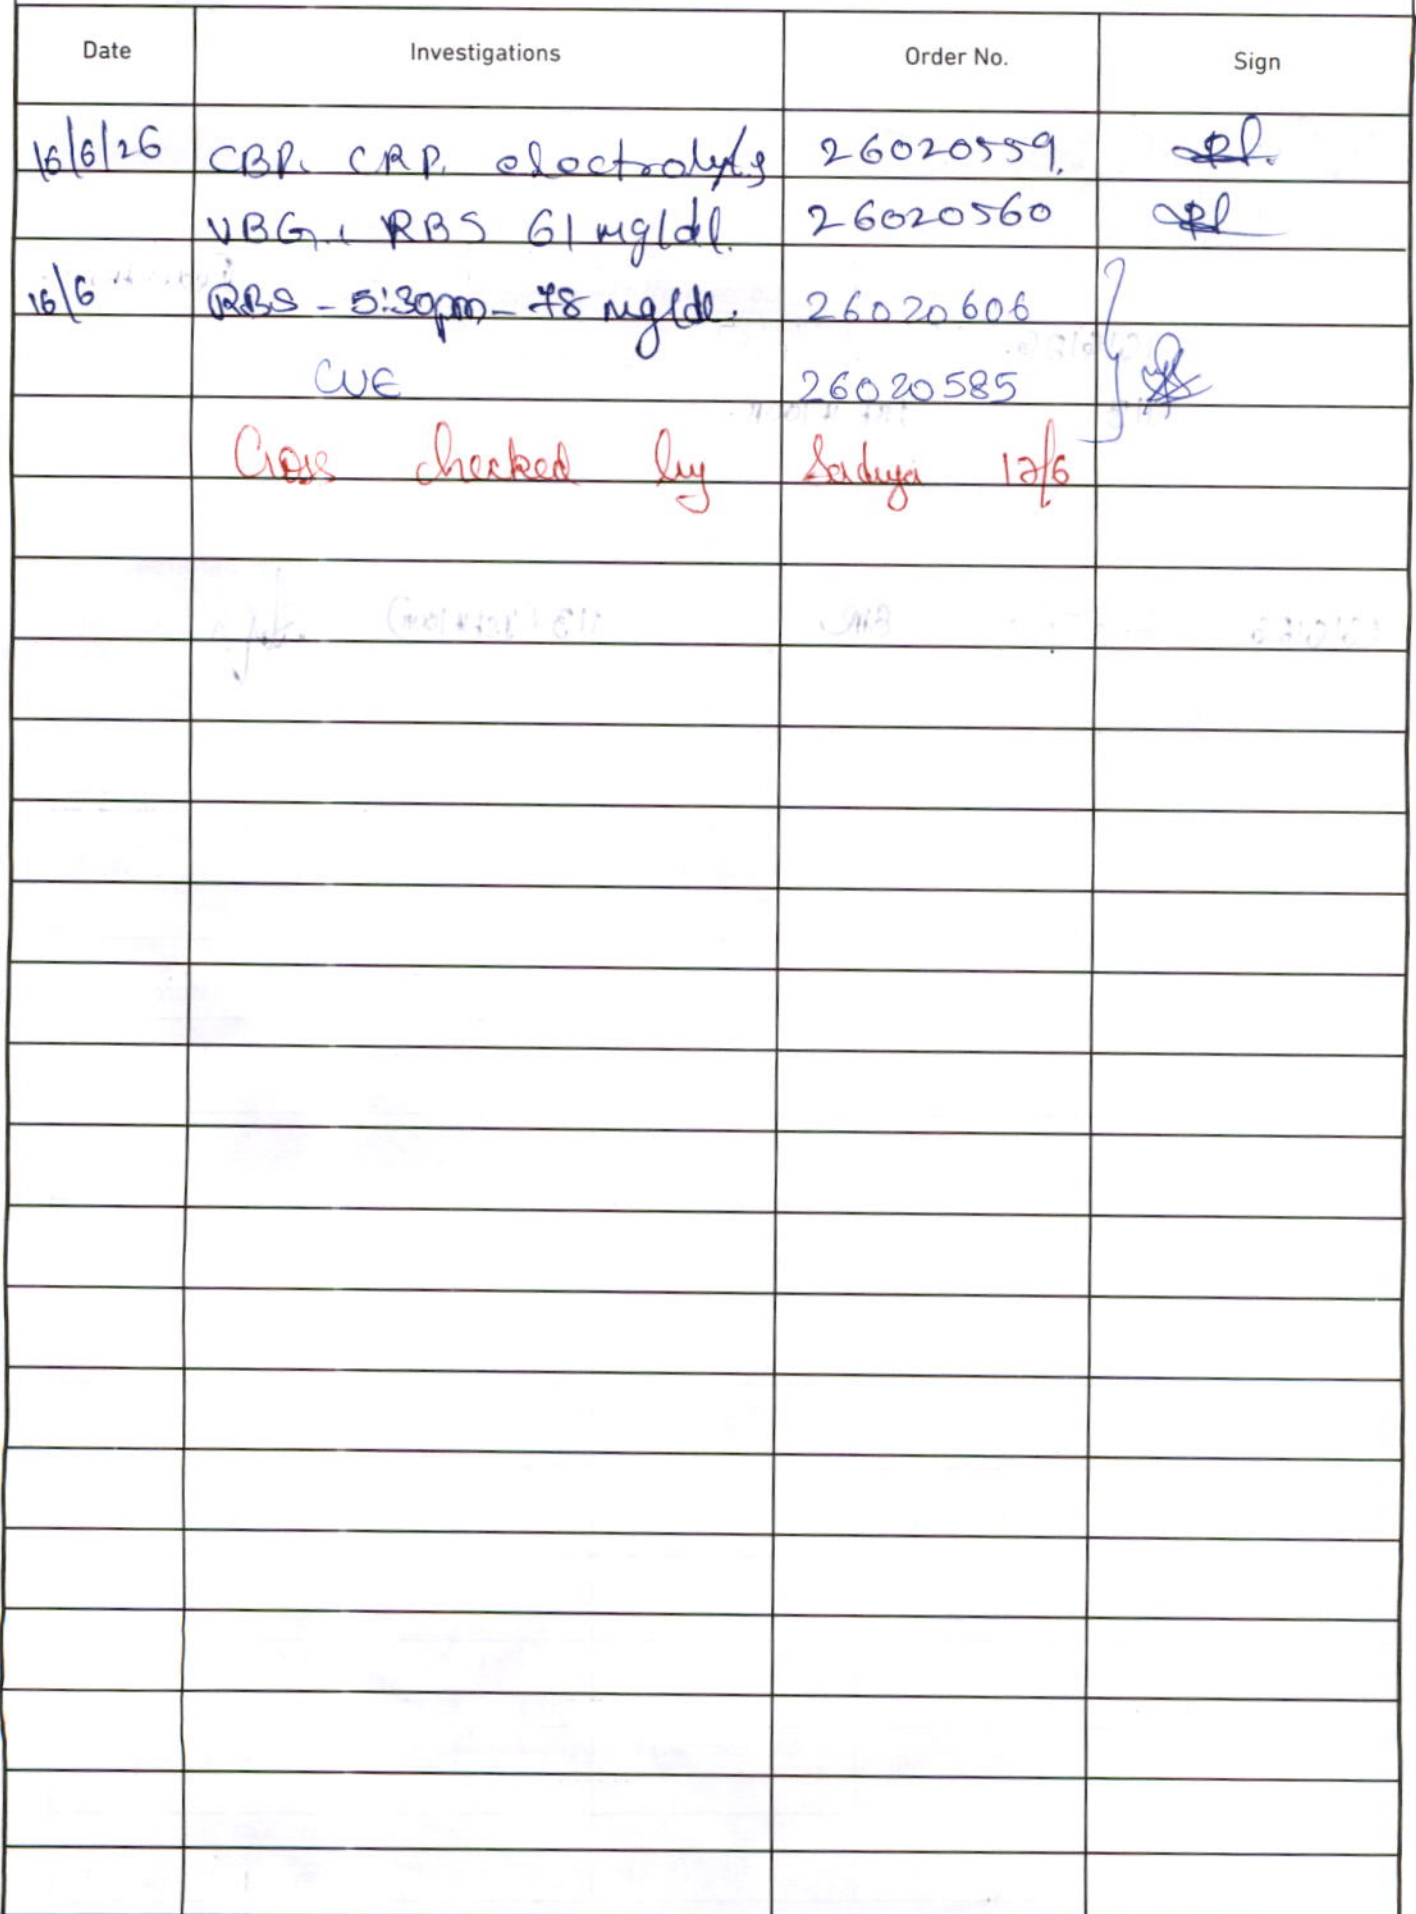 Date Investigations Order No. Sign
16/6/26 CBP. CRP. electrolytes 26020559.
VBG, RBS 61 mg/dl. 26020560
16/6 RBS - 5:30pm - 78 mg/dl. 26020606
CUE 26020585
Cross checked by 17/6